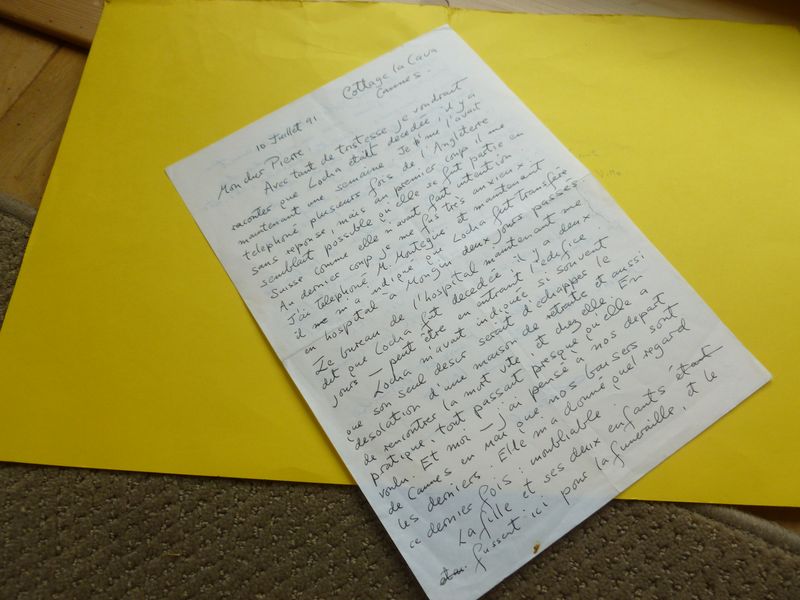 Cottage la Cava
Cannes.
10 Juillet 91
Mon cher Pierre,
Avec tant de tristesse je voudrait
racontés que Locha était décédée, il y a
maintenant une semaine. Je l'avait
telephoné plusieurs fois de l'Angleterre
sans reponse, mais au premier coup il me
semblait possible qu'elle se fut partie en
Suisse comme elle n'avait fait intention.
Au dernier coup je me fus très anxieux.
J'ai telephoné M. Montegue et maintenant
il m'a indiqué que Locha fut transferé
en hospital à Mougin deux jours passés.
Le bureau de l'hospital maintenant me
dit que Locha fut decedée il y a deux
jours – peut être en entrant l'edifice
Locha m'avait indiquée si souvent
que son seul desir serait d'echapper le
desolation d'une maison de retraite et aussi
de rencontrer la mort vite et chez elle. En
pratique, tout passait presque qu'elle a
voulu. Et moi – j'ai pensé à nos depart
de Cannes en mai que nos baisers sont
les derniers. Elle m'a donné quel regard
ce dernier fois: inoubliable.
La fille et ses deux enfants étant
fussent ici pour la funeraille, et le